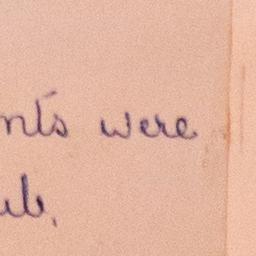 nts were
ub.